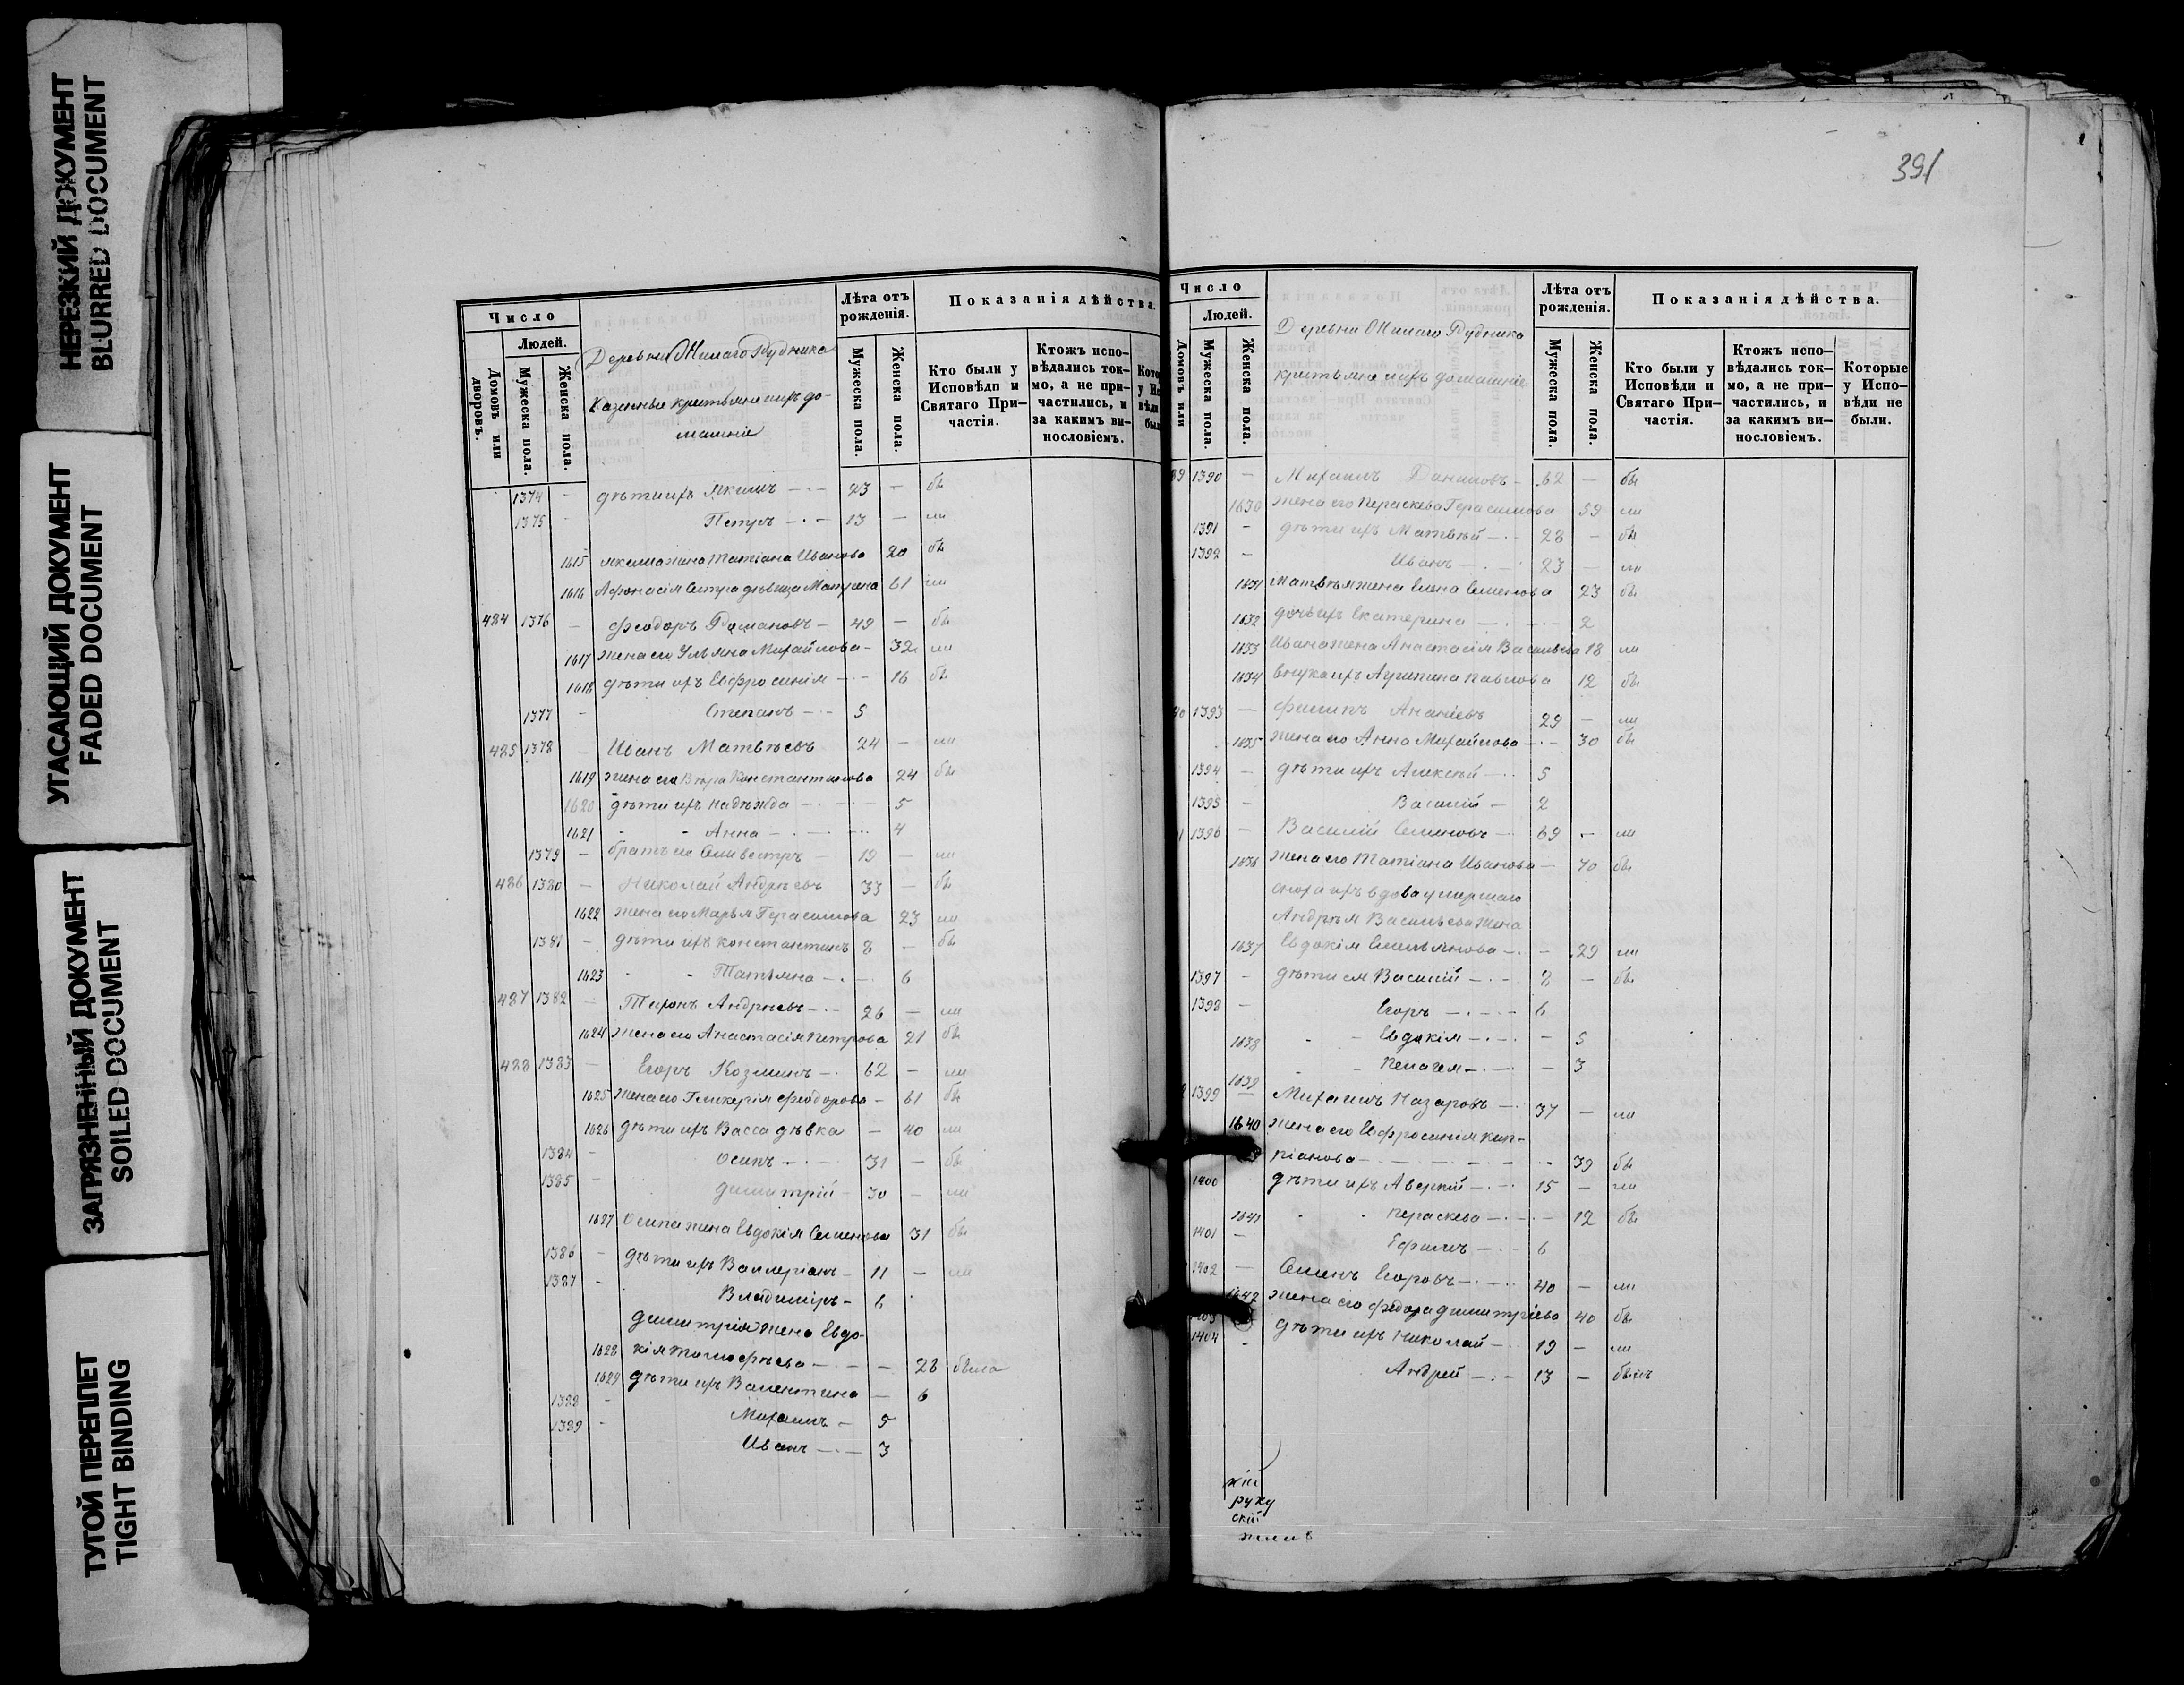 НЕРЕЗКИЙ ДОКУМЕНТ
BLURRED DOCUMENT
УГАСАЮЩИЙ ДОКУМЕНТ
FADED DOCUMENT
ЗАГРЯЗНЕННЫЙ ДОКУМЕНТ
SOILED DOCUMENT
ТУГОЙ ПЕРЕПЛЕТ
TIGHT BINDING
Число
Людей.
Домовъ или дворовъ.
Мужеска пола.
Женска пола.
Деревни Рудника
Казенные крестьяне ихъ до-
машніе
Лѣта отъ рожденія.
Мужеска пола.
Женска пола.
Показанія дѣйства.
Кто были у Исповѣдп и Святаго При-частія.
Ктожъ испо-вѣдались ток-мо, а не при-частились, и за какимъ ви-нословіемъ.
1374 - дѣти ихъ Якимъ 23 - бы
1375 - Петръ 13 - ли
1615 Якима жена Татіана Иванова 20 бы
1616 Афонасія сестра дѣвица Матрена 61 ли
424 1376 - Феодоръ Романовъ 49 - бы
1617 жена его Ульяна Михайлова 32 ли
1618 дѣти ихъ Евфросинія 16 бы
1377 - Степанъ 5
425 1378 - Иванъ Матвѣевъ 24 - ли
1619 жена его Вѣра Константинова 24 бы
1620 дѣти ихъ Надѣжда 5
1621 - - Анна 4
1379 - братъ ее Сильвестръ 19 - ли
426 1380 - Николай Андрѣевъ 33 - бы
1622 жена его Марья Герасимова 23 ли
1381 - дѣти ихъ Константинъ 8 - бы
1623 - - Татьяна 6
427 1382 - Тихонъ Андрѣевъ 26 - ли
1624 жена его Анастасія Петрова 21 бы
428 1383 - Егоръ Козминъ 62 - ли
1625 жена его Гликерія Феодорова 61 бы
1626 дѣти ихъ Васса дѣвка - 40 ли
1384 - Осипъ 31 - бы
1385 - Димитрій 30 - ли
1627 Осипа жена Евдокія Семенова 31 бы
1386 - дѣти ихъ Валлеріанъ 11 - ли
1387 - Владиміръ 6
Димитрія жена Евдо-
1628 кія Тимофѣева - 28 была
1629 дѣти ихъ Валентина - 6
1388 - Михаилъ 5
1389 - Иванъ 3
391
Число
Людей.
Домовъ или
Мужеска пола.
Женска пола.
Деревни Рудника
крестьяне ихъ домашніе
Лѣта отъ рожденія.
Мужеска пола.
Женска пола.
Показанія дѣйства.
Кто были у Исповѣди и Святаго При-частія.
Ктожъ испо-вѣдались ток-мо, а не при-частились, и за какимъ ви-нословіемъ.
Которые у Испо-вѣди не были.
89 1390 - Михаилъ Даниловъ 62 - бы
1630 жена его Пераскева Герасимова 59 ли
1391 - дѣти ихъ Матвѣй 28 - бы
1392 - Иванъ 23 - ли
1631 Матвѣя жена Елена Семенова 23 бы
1632 дочь ихъ Екатерина 2
1633 Ивана жена Анастасія Васильева 18 ли
1634 внука ихъ Агрипина Павлова 12 бы
1393 - Филипъ Ананіевъ 29 - ли
1635 жена его Анна Михайлова 30 бы
1394 - дѣти ихъ Алексѣй 5
1395 - Василій 2
1396 - Василій Семеновъ 69 - ли
1636 жена его Татіана Иванова 70 бы
сноха ихъ вдова умершаго
Андрѣя Васильева жена
1637 Евдокія Емельянова - 29 ли
1397 - дѣти ея Василій 8 - бы
1398 - Егоръ 6
1638 - - Евдокія - 5
1639 - - Пелагея - 3
1399 - Михаилъ Назаровъ 37 - ли
1640 жена его Евфросинія Кип-
ріанова 39 бы
1400 дѣти ихъ Аверкій 15 - ли
1641 - - Пераскева - 12 бы
1401 - Ефимъ 6
1402 - Семенъ Егоровъ 40 - ли
1642 жена его Федора Димитріева 40 бы
1403 дѣти ихъ Николай 19 - ли
1404 - Андрей 13 - былъ
руку
скій